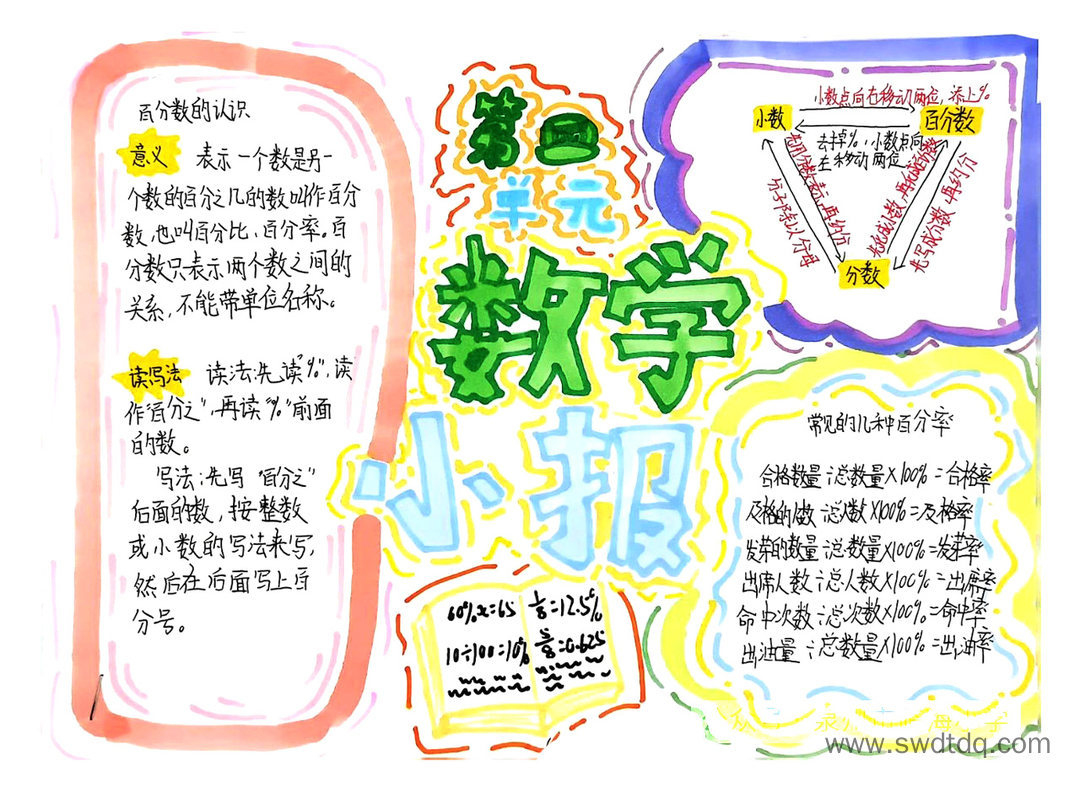 百分数的认识
意义 表示一个数是另一
个数的百分之几的数叫作百分
数,也叫百分比,百分率。百
分数只表示两个数之间的
关系,不能带单位名称。
读写法 读法:先读“%”,读
作“百分之”,再读“%”前面
的数。
写法:先写“百分之”
后面的数,按整数
或小数的写法来写,
然后在后面写上百
分号。
第二
单元
数学
小报
60%x=65
10÷100=10%
1/8=12.5%
5/8=0.625
小数点向右移动几两位,添上%
小数
百分数
去掉%,小数点向
左移动两位
分子除以分母
先写成分数,再约分
分数
常见的几种百分率
合格数量÷总数量×100%=合格率
及格的人数÷总人数×100%=及格率
发芽的数量÷总数量×100%=发芽率
出席人数÷总人数×100%=出席率
命中次数÷总次数×100%=命中率
出油量÷总数量×100%=出油率
www.swdtdq.com